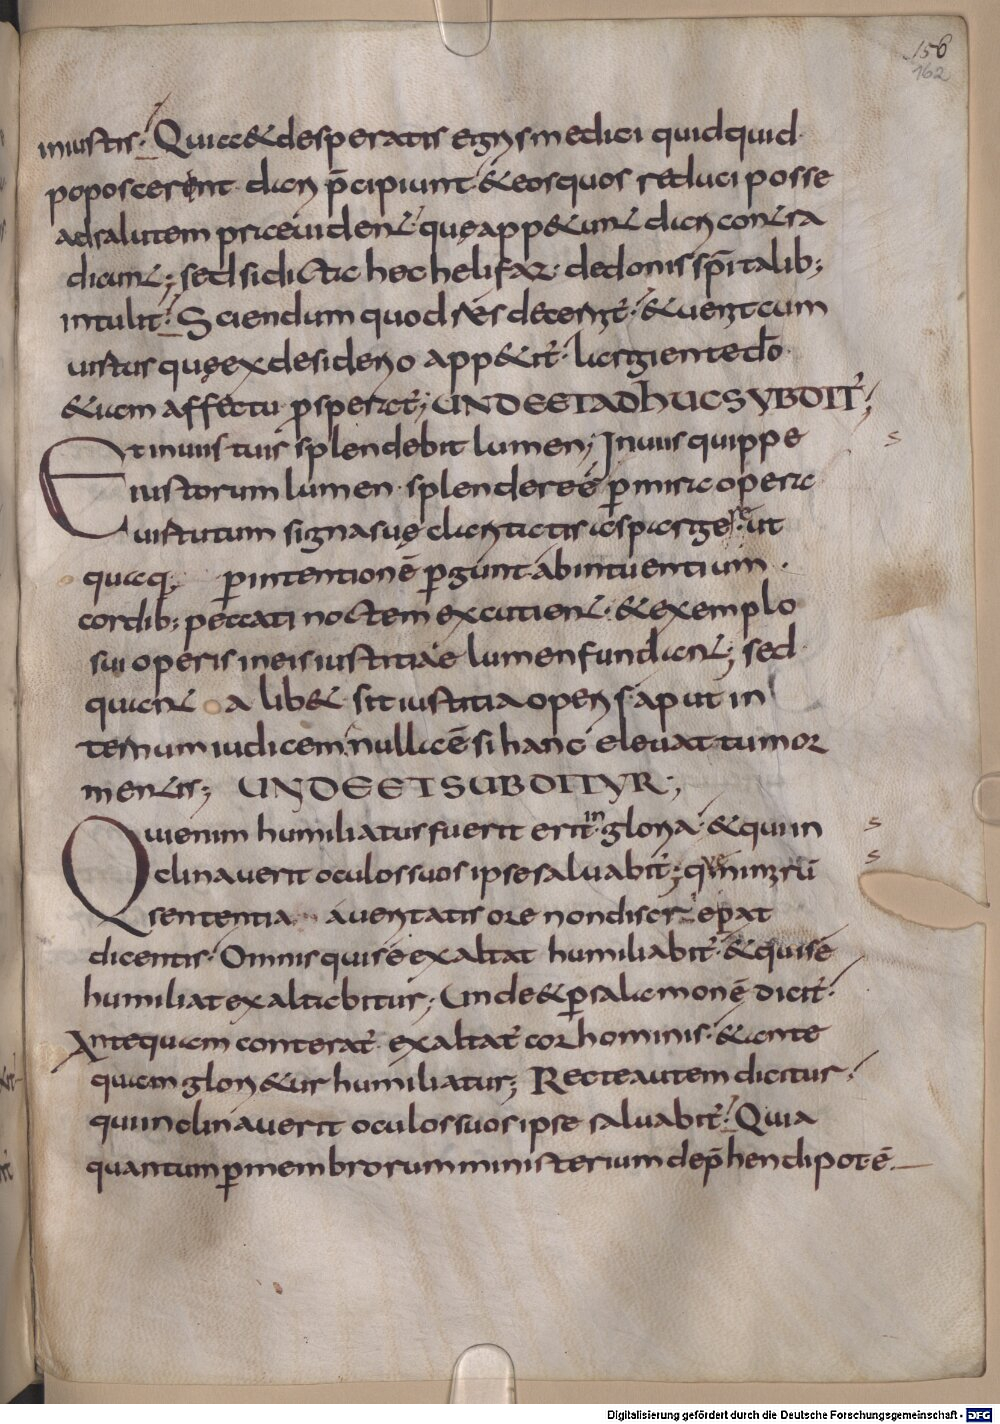 156
162
iniustis. Quia & desperatis egris medici quidquid
poposcerint. dari p̄cipiunt. & eos quos reduci posse
ad salutem praeuident. quę app&unt dari contra
dicunt; sed si dicta hec helifaz. de donis sp̄italib;
intulit. Sciendum quod res decernet̄. & ueniet cum
uirtus quę ex desiderio app&it̄. largiente dō
& iam affectu ꝓsperatur; UNDE ET ADHUC SVBDIT̄;
Et in uiis tuis splendebit lumen; In uiis quippe
iustorum lumen. splendere ē ꝑ mira opera
uirtutum signa suę claritatis aspargere. ut
quaq; ꝑ intentionē ꝑgunt ab intuentium.
cordib; peccati noctem excutiant. & exemplo
sui operis in eis iustitiae lumen fundant; sed
quanta lib& sit iustitia operis. aput in
ternum iudicem. nulla ē si hanc eleuat tumor
mentis; UNDE ET SUBDITVR;
Qui enim humiliatus fuerit erit in gloria. & qui in
clinauerit oculos suos ipse saluabit̄; que nimirū
sententia a ueritatis ore non discrepat
dicentis. Omnis qui se exaltat humiliabit̄. & qui se
humiliat exaltabitur; Unde & ꝑ salamonē dicit̄.
Antequam conterat̄. exaltat̄ cor hominis. & ante
quam glori&ur humiliatur; Recte autem dicitur.
qui inclinauerit oculos suos ipse saluabit̄. Quia
quantum ꝑ membrorum ministerium dep̄hendi pot ē.
Digitalisierung gefördert durch die Deutsche Forschungsgemeinschaft - DFG